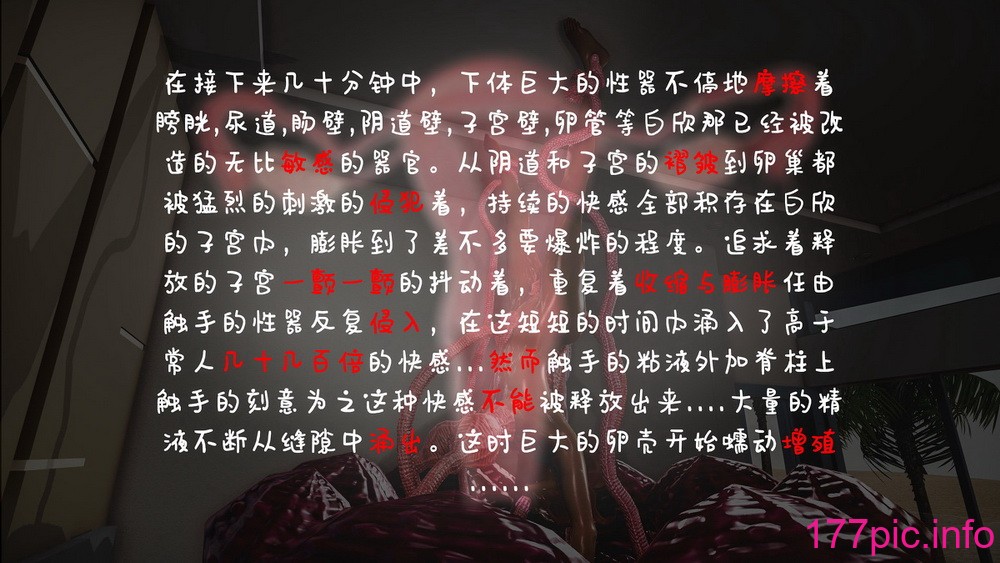 在接下来几十分钟中，下体巨大的性器不停地摩擦着
膀胱,尿道,肠壁,阴道壁,子宫壁,卵管等白欣那已经被改
造的无比敏感的器官。从阴道和子宫的褶皱到卵巢都
被猛烈的刺激的侵犯着，持续的快感全部积存在白欣
的子宫内，膨胀到了差不多要爆炸的程度。追求着释
放的子宫一颤一颤的抖动着，重复着收缩与膨胀任由
触手的性器反复侵入，在这短短的时间内涌入了高于
常人几十几百倍的快感...然而触手的粘液外加脊柱上
触手的刻意为之这种快感不能被释放出来....大量的精
液不断从缝隙中涌出。这时巨大的卵壳开始蠕动增殖
......
177pic.info